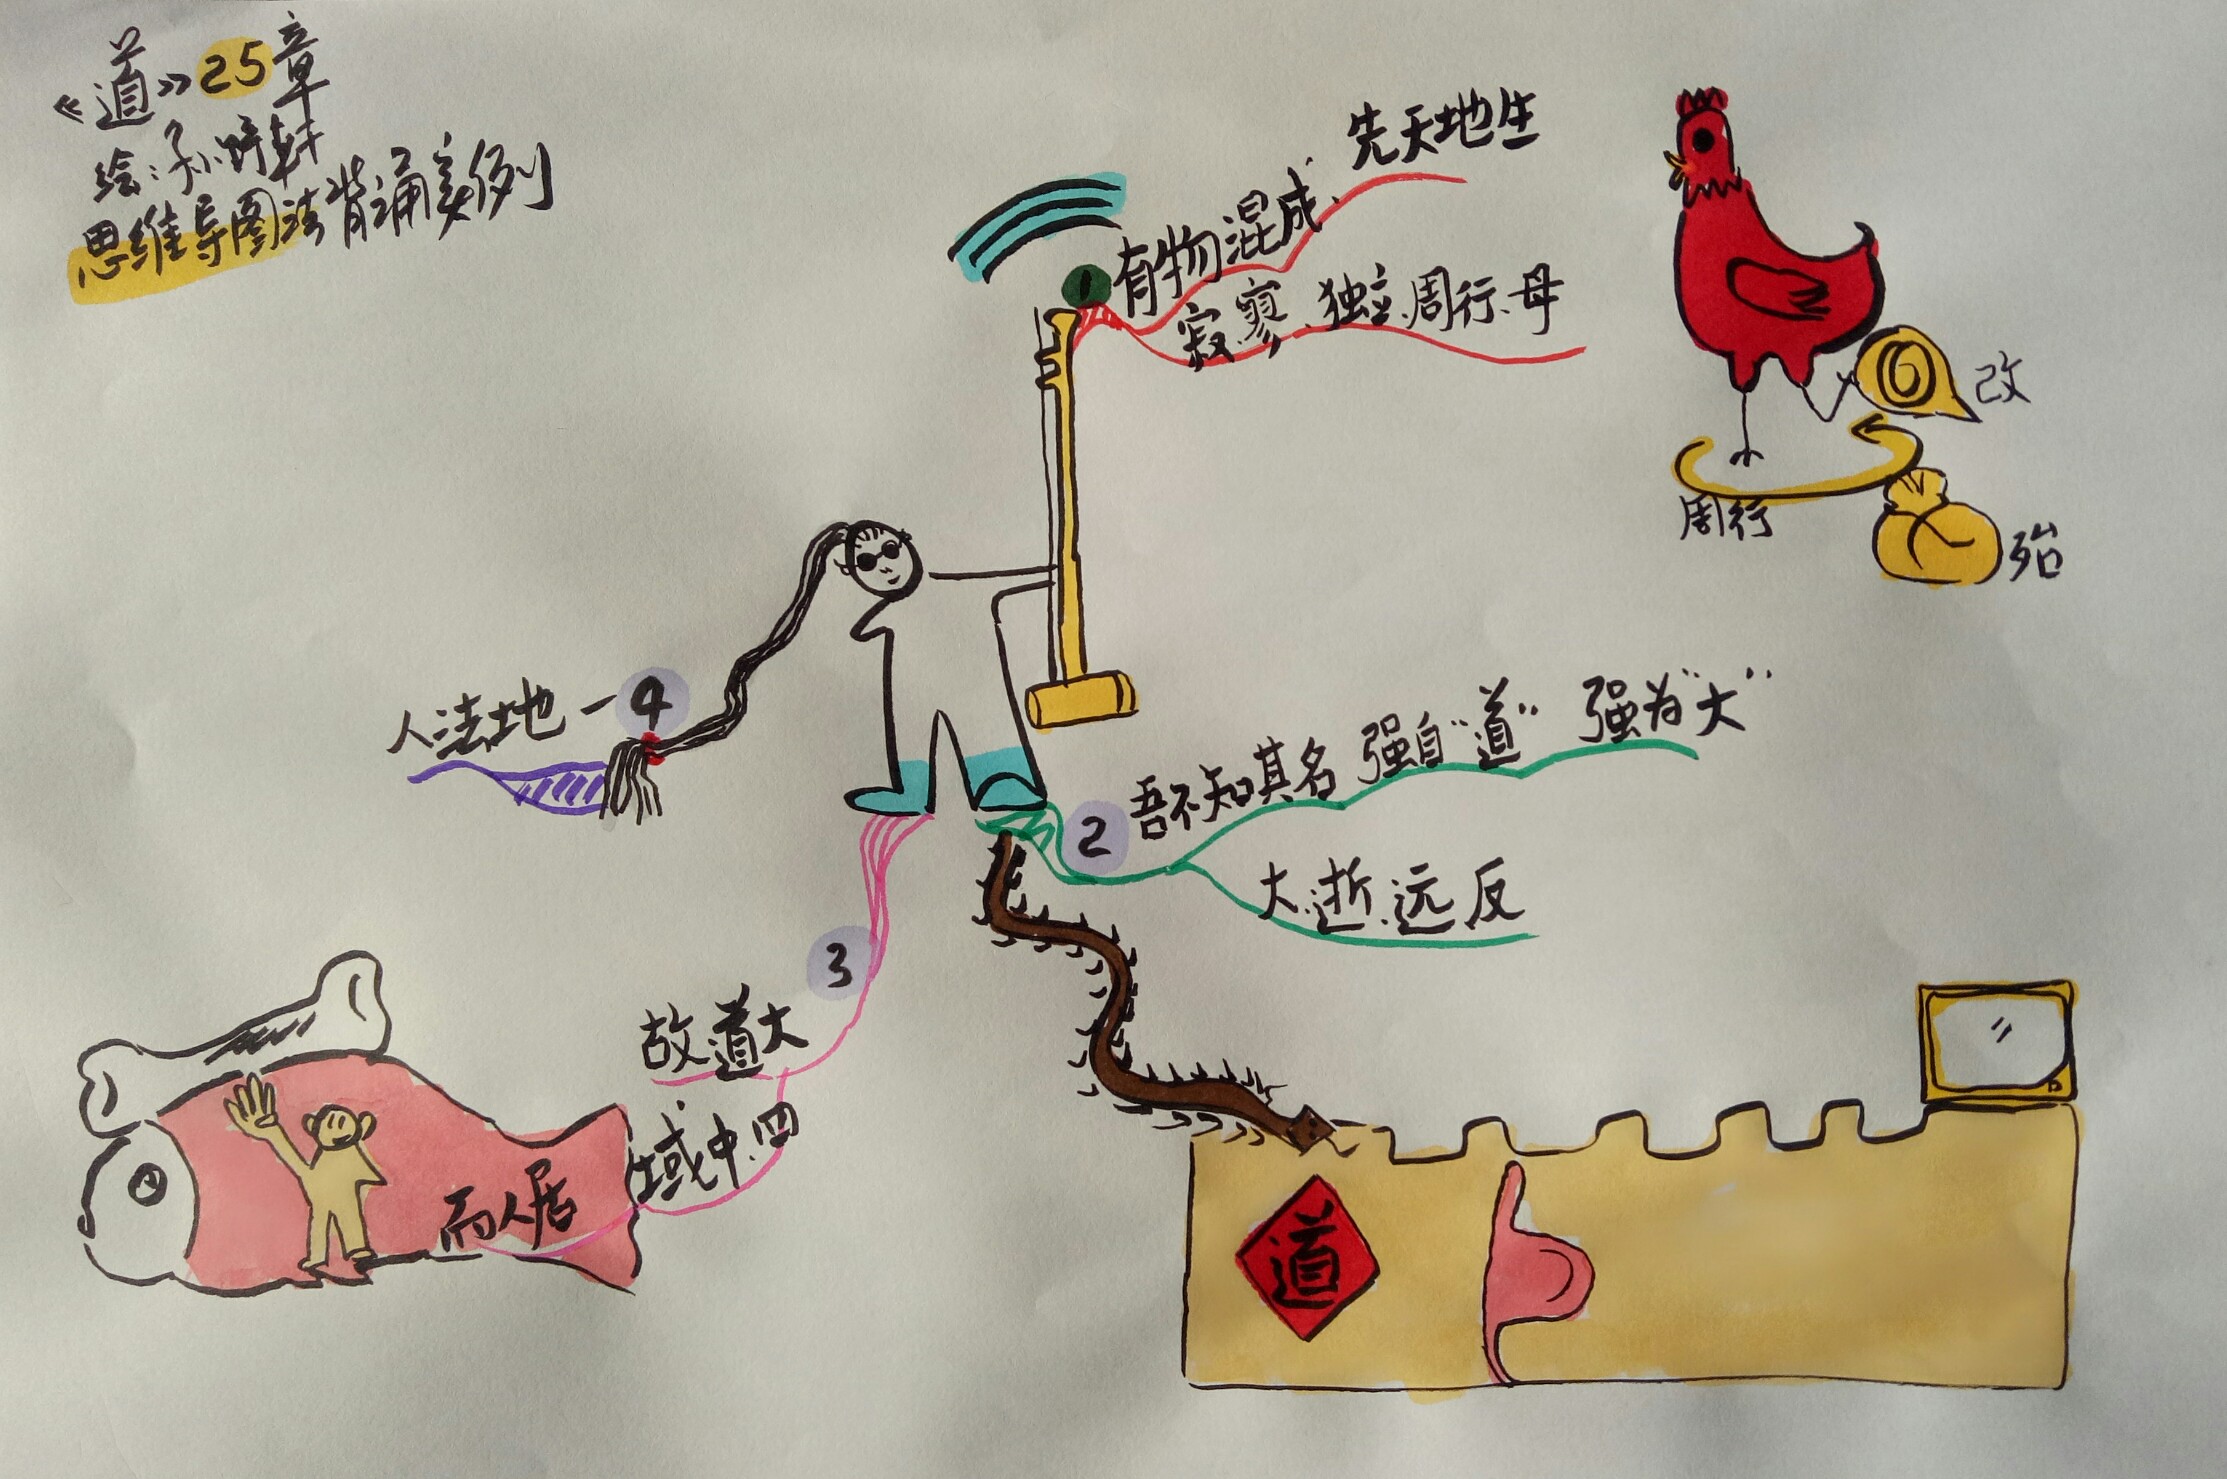 《道》25章
绘:孙婷轩
思维导图法背诵实例
1
有物混成、先天地生
寂.寥.独立.周行.母
改
周行
殆
人法地一
4
2
吾不知其名 强自"道" 强为"大"
大.逝.远 反
3
故道大
域中.四
而人居
道